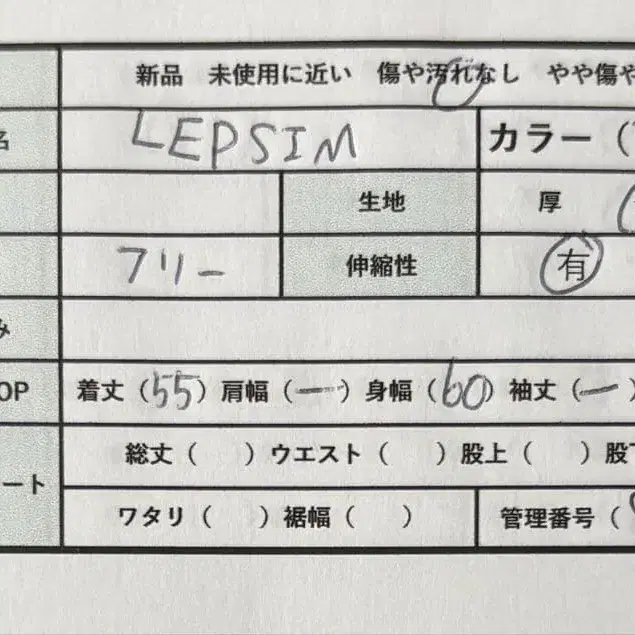 新品 未使用に近い 傷や汚れなし やや傷や
名 LEPSIM カラー（
生地 厚
フリー 伸縮性 有
み
OP 着丈（55）肩幅（ー）身幅（60）袖丈（ー）
総丈（ ）ウエスト（ ）股上（ ）股下
ート
ワタリ（ ）裾幅（ ） 管理番号（